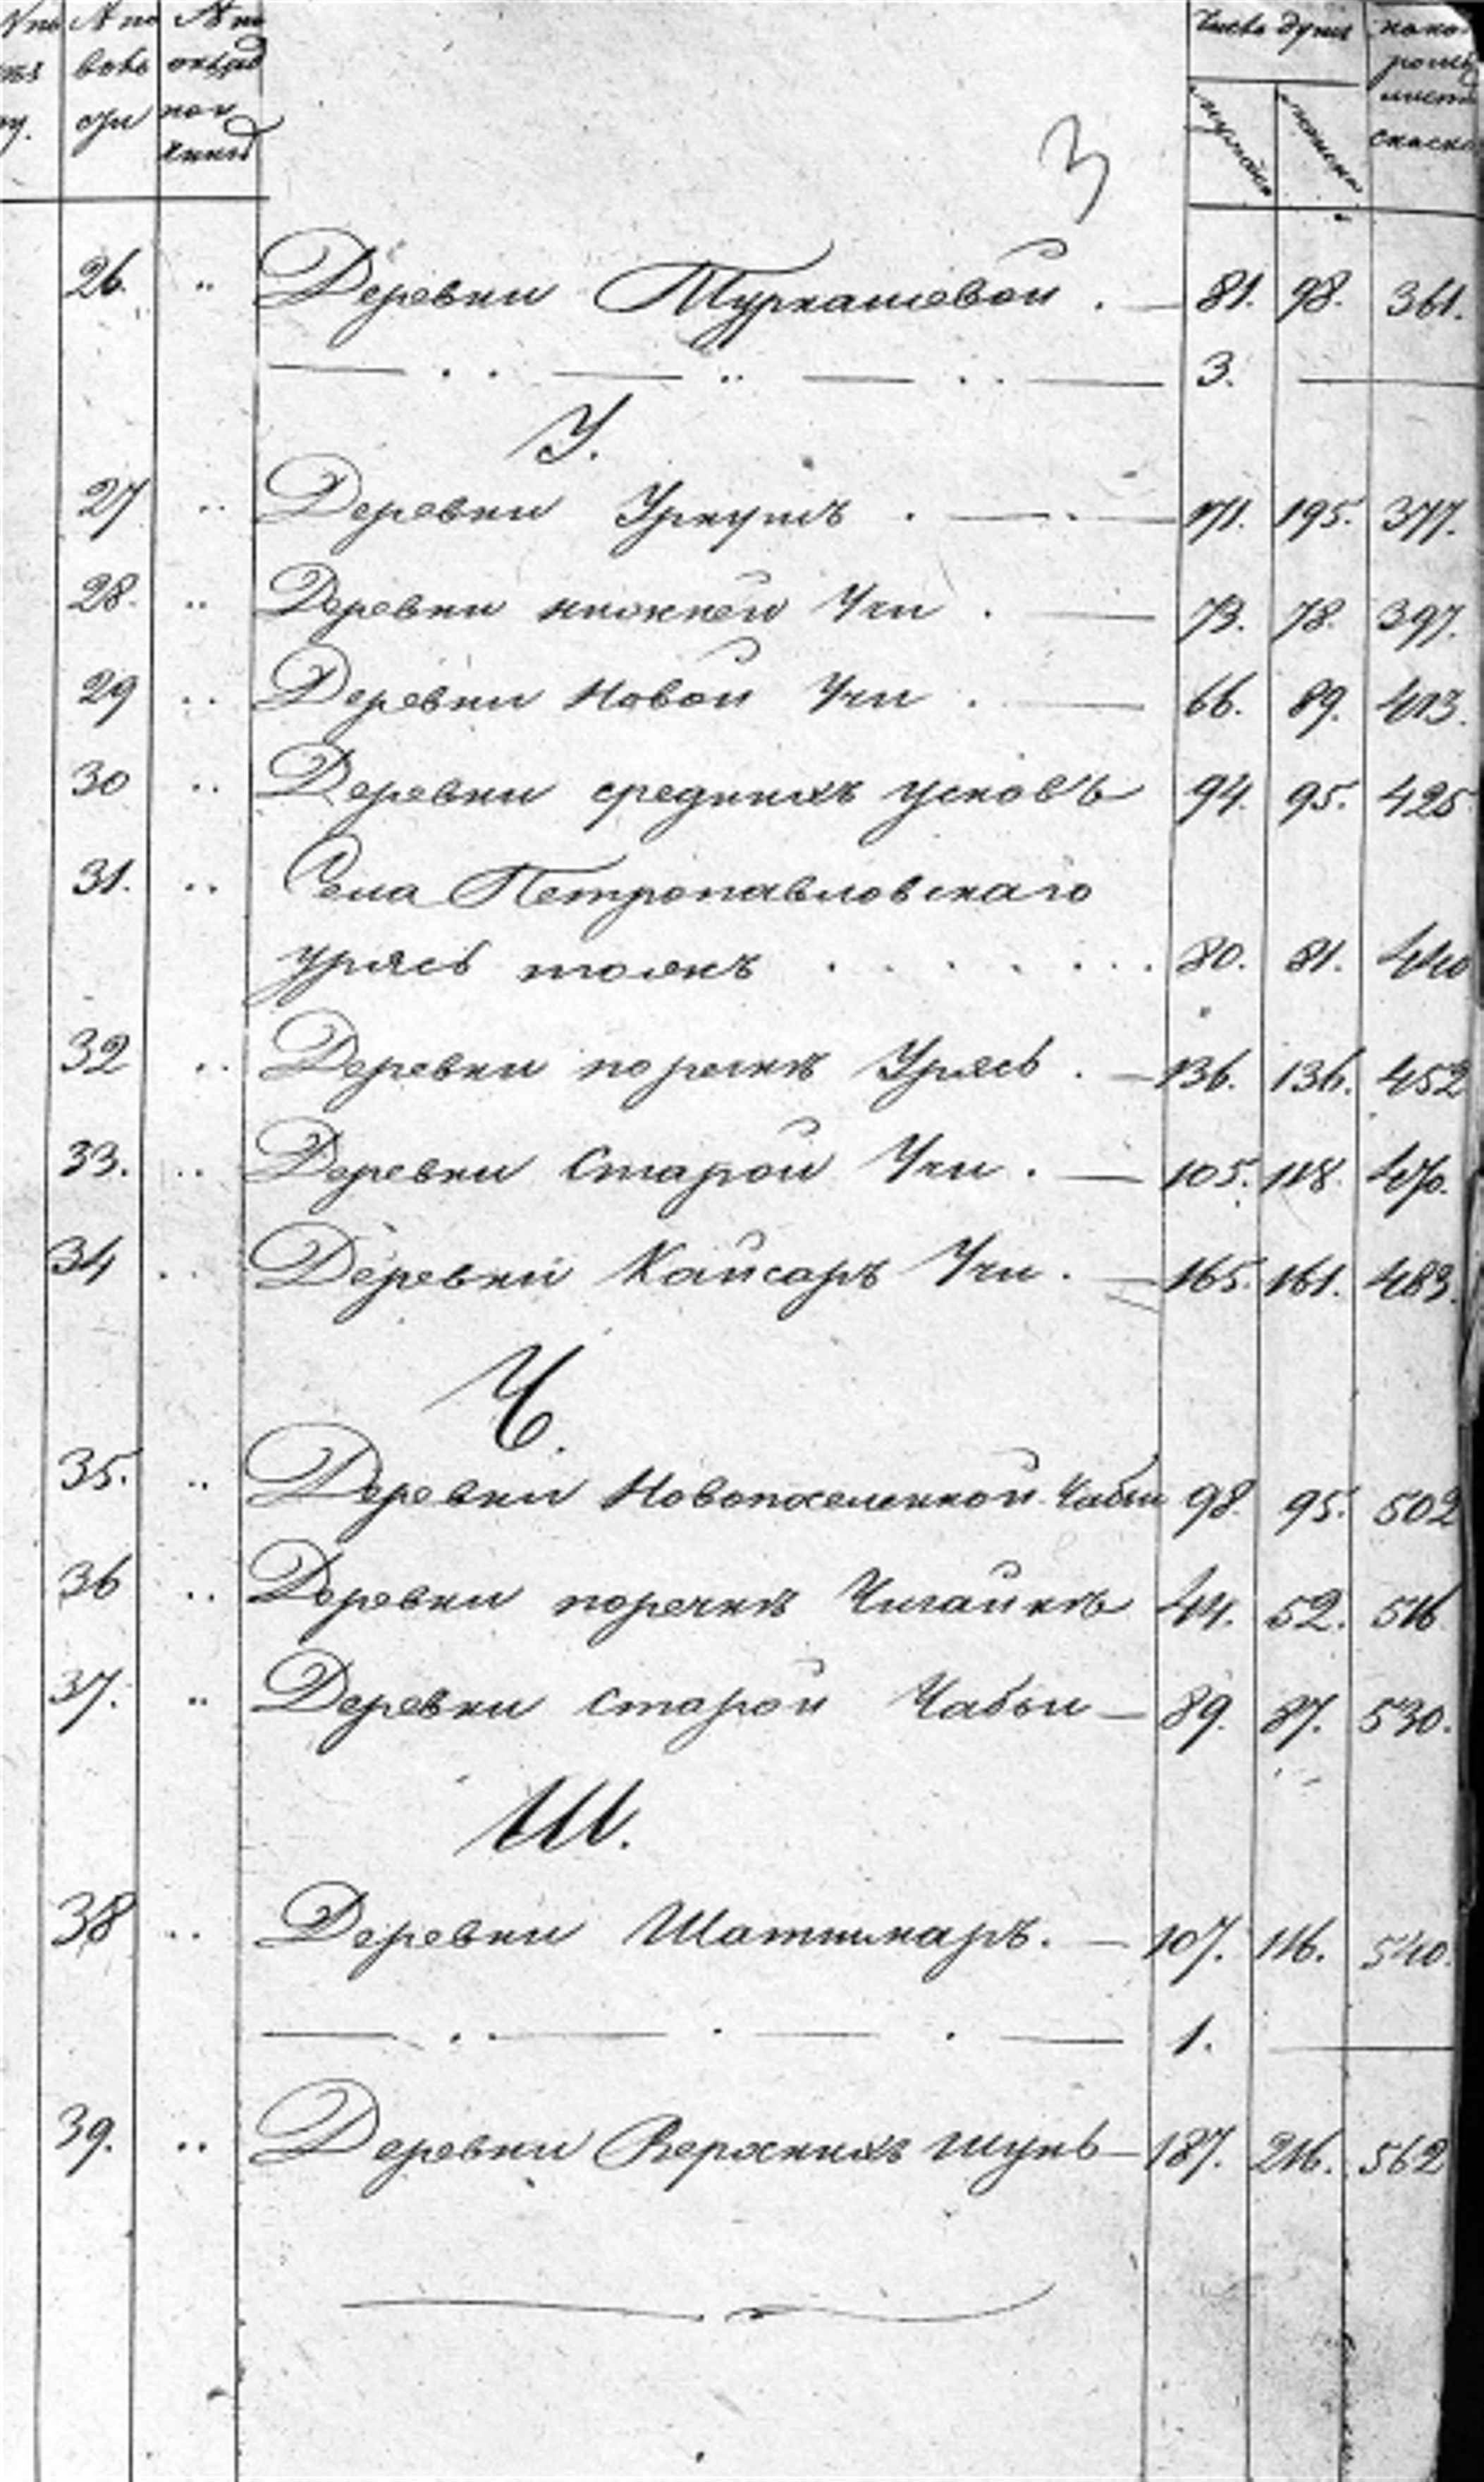 № по № по № по
вой оклад
ри ной
книгѣ
Число душъ
мужеска
женска
на ко-
ромъ
листѣ
сказка
3
26. " Деревни Туркашевой . — 81. 98. 361.
— . . — " — . . — 3. —
У.
27 " Деревни Уркушъ . — . — 171. 195. 377.
28. " Деревни нижней Учи . — 73. 78. 397.
29 " Деревни Новой Учи . — 66. 89. 413.
30 " Деревни среднихъ усковъ 94. 95. 425
31. " Села Петропавловскаго
урясь тожъ . . . . . . . 80. 81. 440
32 " Деревни по речкѣ Урясь . — 136. 136. 452
33. " Деревни Старой Учи . — 105. 118. 470.
34 " Деревни Кайсаръ Учи . — 165. 161. 483.
Ч.
35. " Деревни Новопоселенной Чабьи 98. 95. 502
36 " Деревни поречкѣ Чигайкѣ 44. 52. 516
37. " Деревни Старой Чабьи — 89. 87. 530.
Ш.
38 " Деревни Шатникаръ. — 107. 116. 540.
— . . — . — . — 1. —
39. " Деревни Верхнихъ шунь — 187. 216. 562